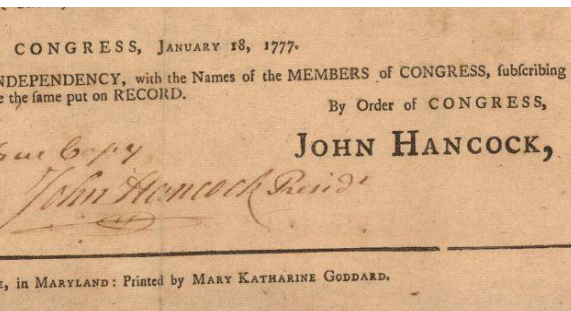 CONGRESS, JANUARY 18, 1777.
NDEPENDENCY, with the Names of the MEMBERS of CONGRESS, ſubſcribing
e the ſame put on RECORD.
By Order of CONGRESS,
JOHN HANCOCK,
rue Copy
John Hancock Presidt
E, in MARYLAND: Printed by MARY KATHARINE GODDARD.